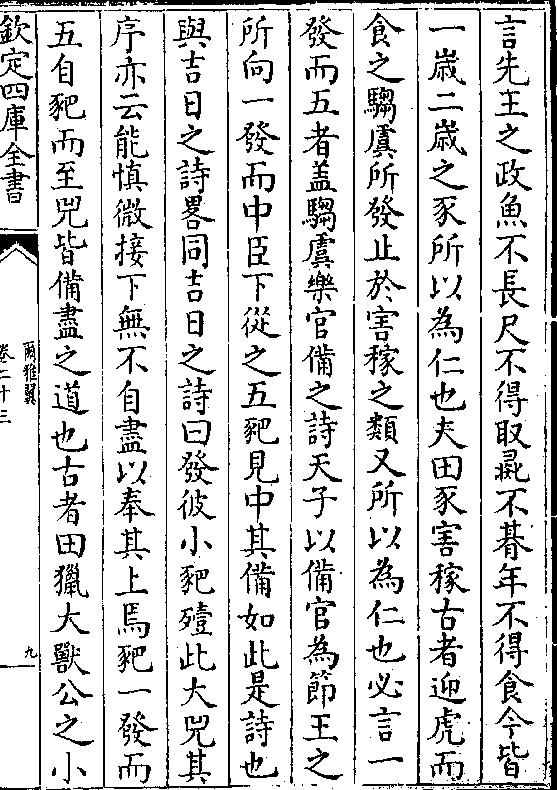 言先王之政魚不長尺不得取彘不朞年不得食今皆
一歳二歳之豕所以為仁也夫田豕害稼古者迎虎而
食之騶虞所發止於害稼之類又所以為仁也必言一
發而五者盖騶虞樂官備之詩天子以備官為節王之
所向一發而中臣下從之五豝見中其備如此是詩也
與吉日之詩畧同吉日之詩曰發彼小豝殪此大兕其
序亦云能慎微接下無不自盡以奉其上焉豝一發而
五自豝而至兕皆備盡之道也古者田獵大獸公之小
欽定四庫全書
爾雅翼
卷二十三
九